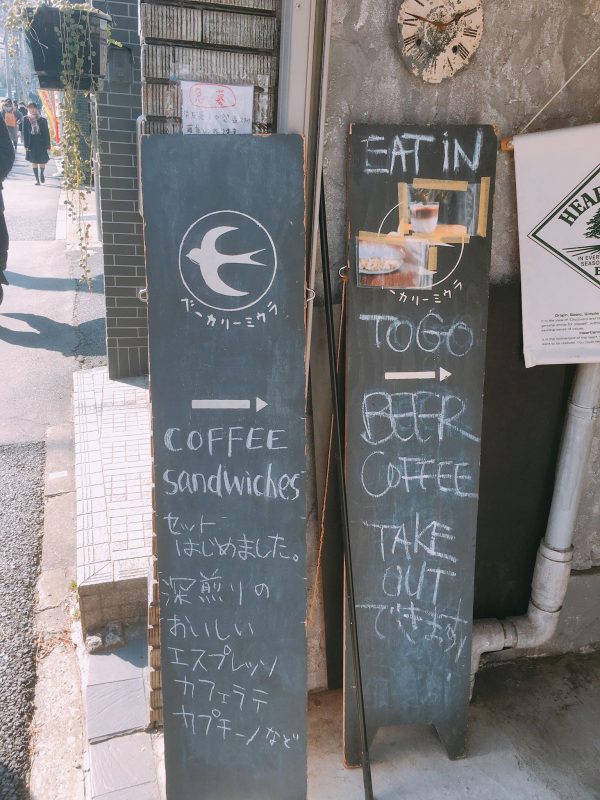 急募
ブーカリーミウラ
COFFEE
Sandwiches
セット
はじめました。
深煎りの
おいしい
エスプレッソ
カフェラテ
カプチーノなど
EAT iN
カリーミウラ
TOGO
BEER
COFFEE
TAKE
OUT
できます!
HEA
IN EVER
SEASO
Origin. Basic. Simple